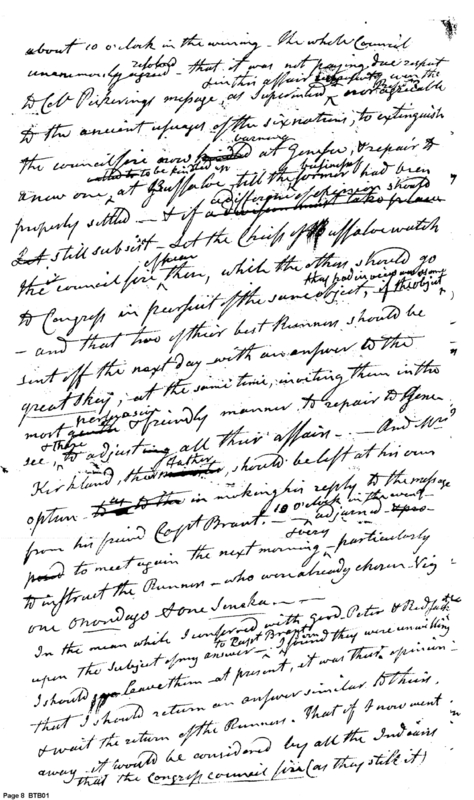 about 10 o'clock in the evening - The whole Council
resolved
unanemously agreed - that it was not paying due respect
in this affair
to Col. Pickerings message, as Superintend even the
to the ancient usages of the six nations, to extinguish
burning
the council fire now at Geneseo, & repair to
to be kindled up business
a new one, at Buffaloe, till the former had been
a difference of opinion should
properly settled - & if
still subsist - Let the Chiefs of Buffaloe watch
their council fire there, while the others should go
they had in view
to Congress in pearsuit of the same object,
- and that two of their best Runners should be
sent off the next day with an answer to the
great sky; at the same time, inviting them in the
persuasive
most & friendly manner to repair to Gene
& there
see, to adjust all their affairs. - And Mr.
Father
Kirkland, their should be left at his own
option in making his reply to the message
10 o'clock in the even
from his friend Capt Brant. - adjourned
to meet again the next morning - particularly
to instruct the Runners - who were already chosen Viz
one Onondago & one Seneka. -
In the mean while I conferred with good Peter & Red Jacket
to Capt Brant
upon the subject of my answer - I found they were unwilling
I should leave them at present, it was their opinion
that I should return an answer similar to theirs,
& wait the return of the Runners. That if I now went
away it would be considered by all the Indians
that the Congress council fire (as they stile it)
Page 8 BTB01